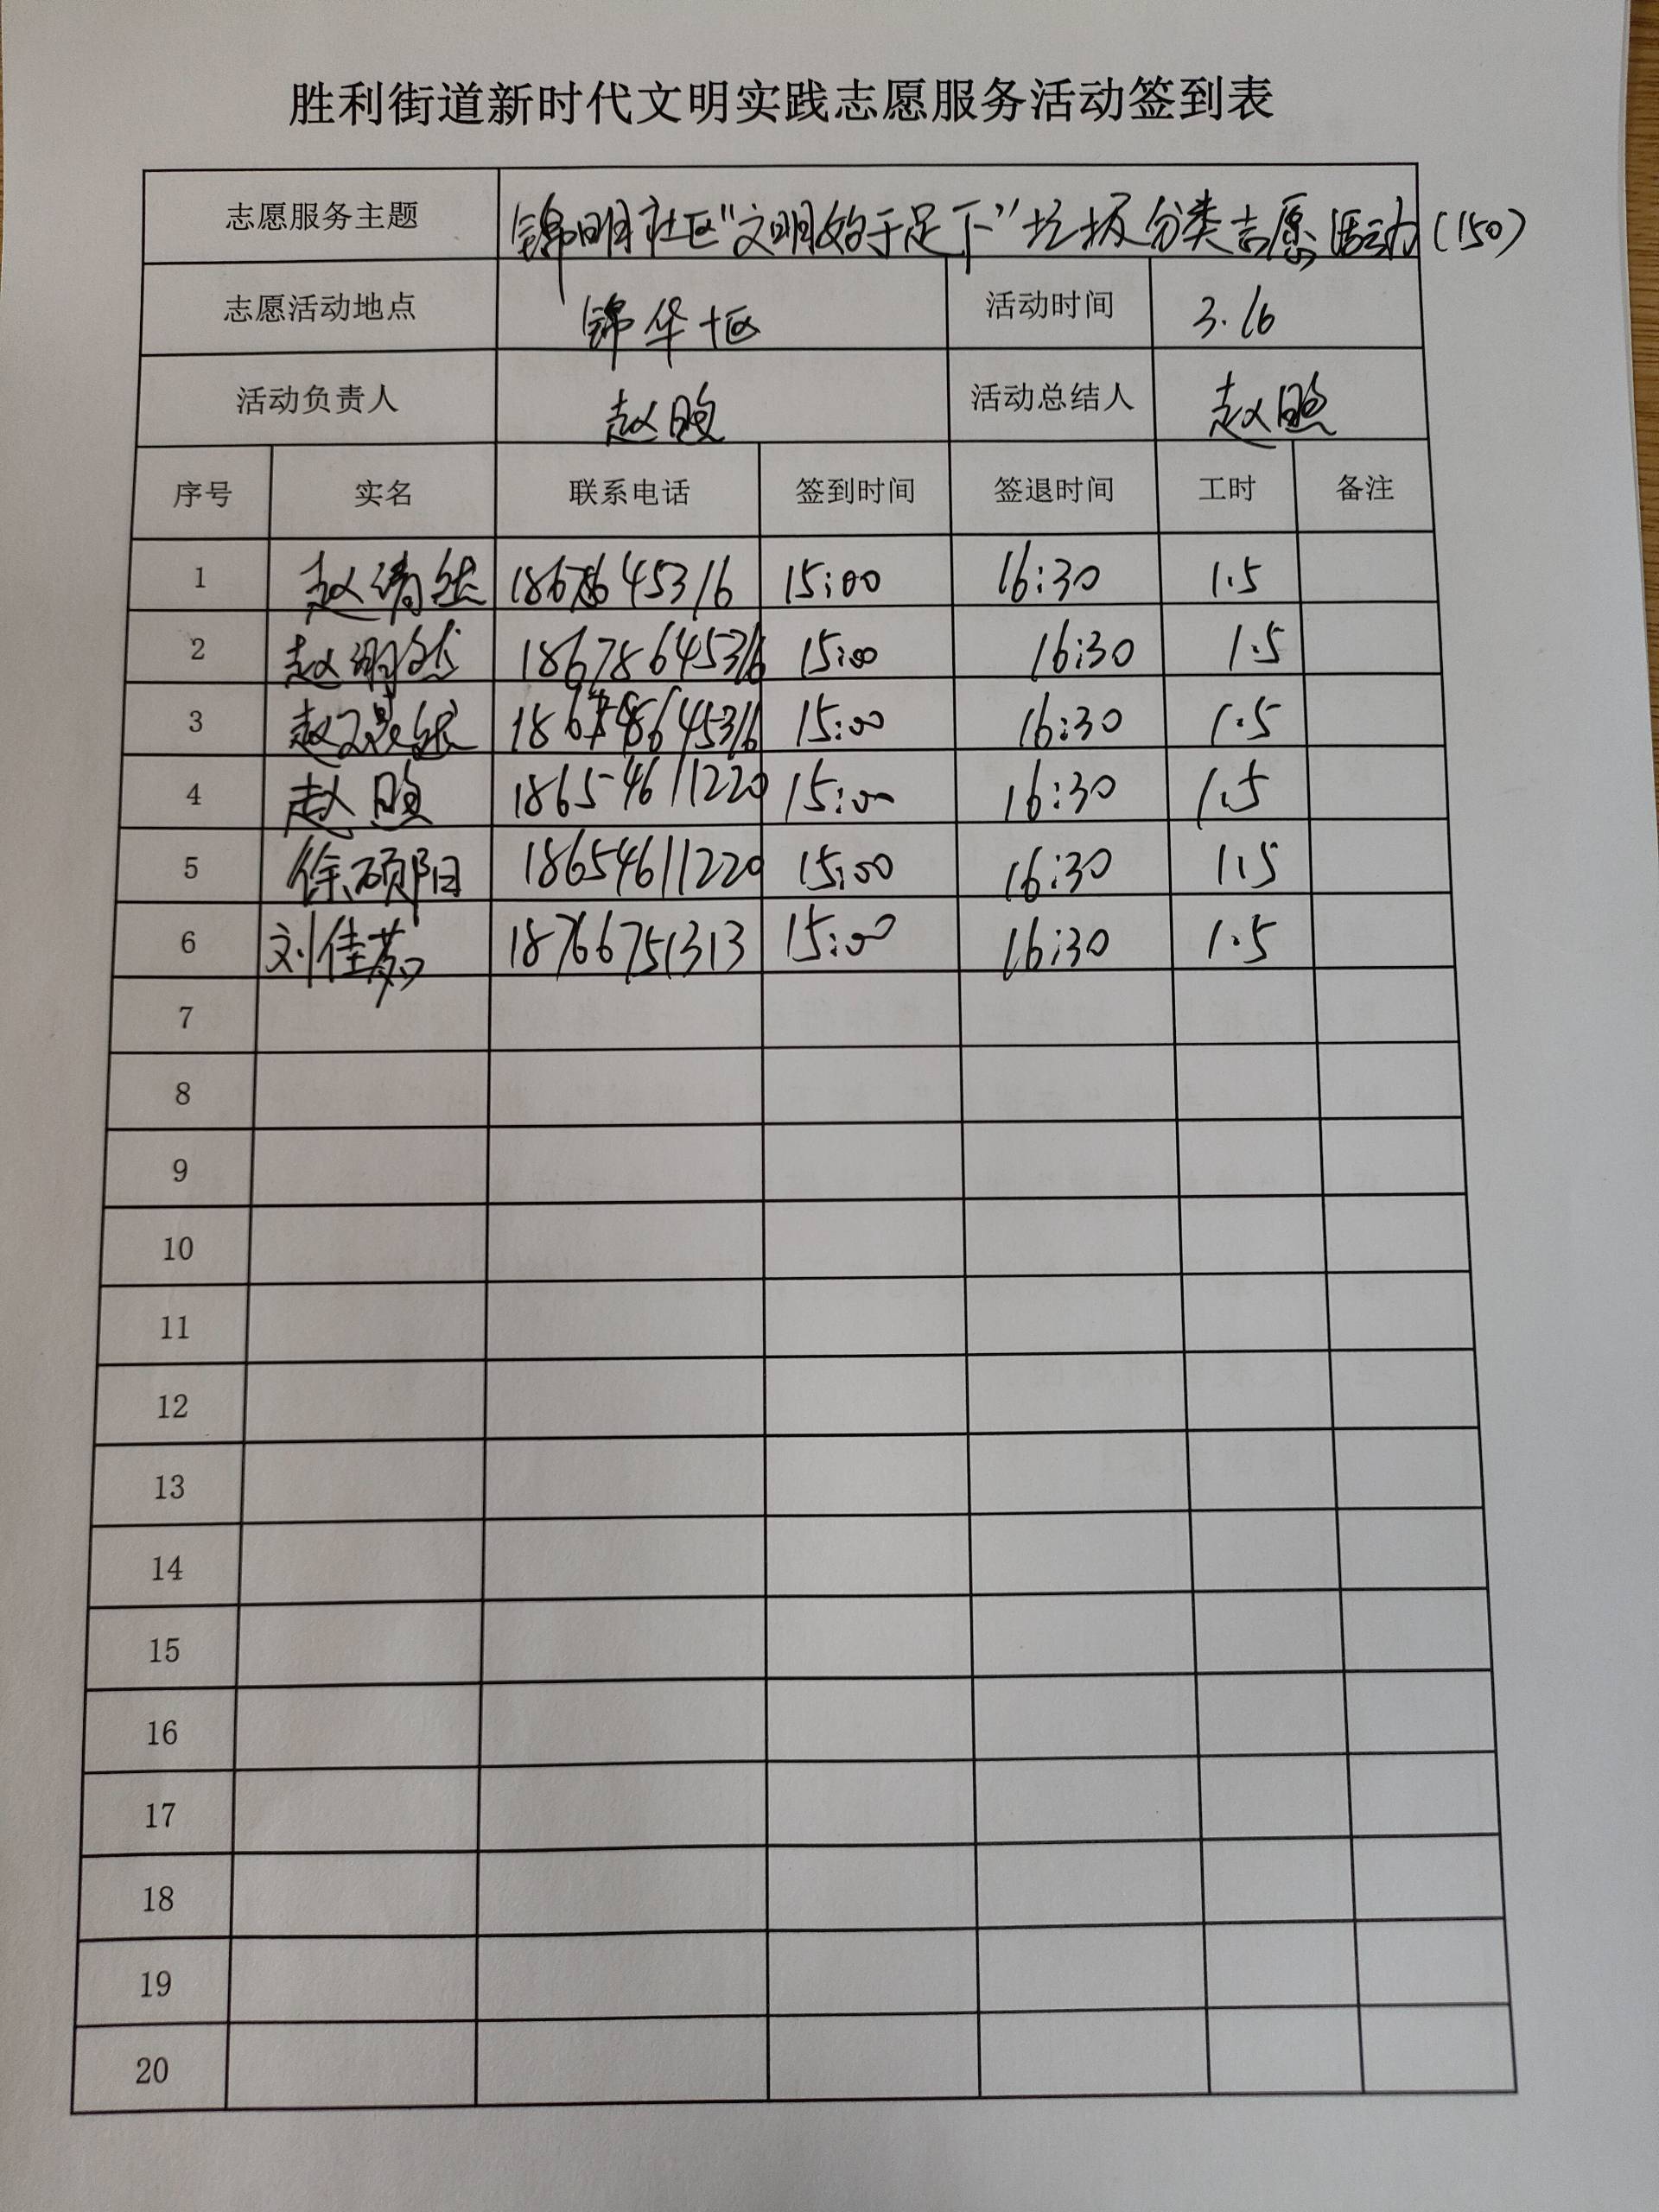 胜利街道新时代文明实践志愿服务活动签到表
志愿服务主题 锦明社区“文明始于足下”垃圾分类志愿活动(150)
志愿活动地点 锦华十区 活动时间 3.16
活动负责人 赵 活动总结人 赵
序号 实名 联系电话 签到时间 签退时间 工时 备注
1 赵 15:00 16:30 1.5
2 赵 18678645316 15:00 16:30 1.5
3 赵 15:00 16:30 1.5
4 赵 18654611220 15:00 16:30 1.5
5 徐硕阳 18654611220 15:00 16:30 1.5
6 刘佳茹 18766751313 15:00 16:30 1.5
7
8
9
10
11
12
13
14
15
16
17
18
19
20